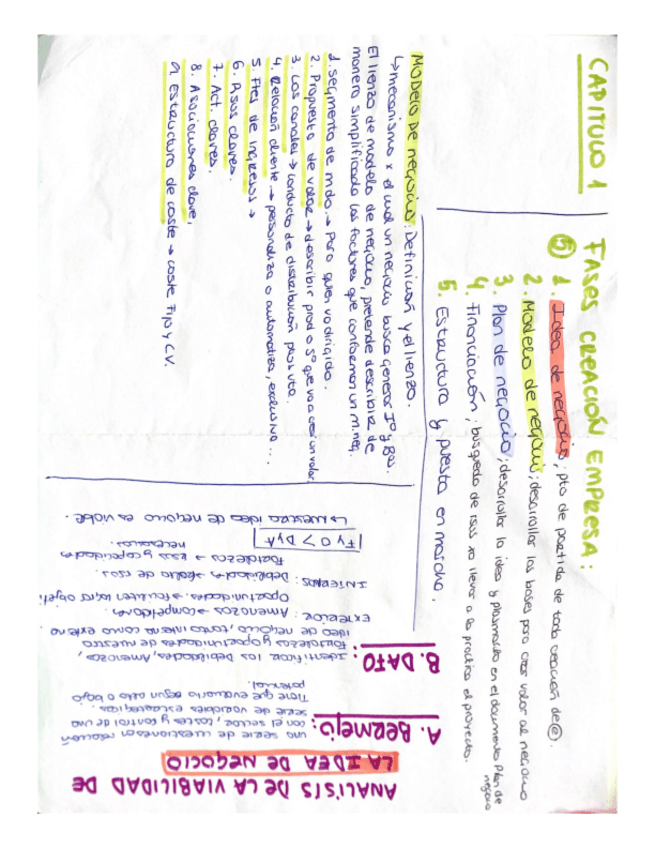 CAPITULO 1
FASES CREACIÓN EMPRESA:
⑤ 1. Idea de negocio; pto de partida de toda creación de @.
2. Modelo de negocio; desarrollar las bases para crear valor al negocio
3. Plan de negocio; desarrollar la idea y plasmarlo en el documento Plan de
negocio
4. Financiación; búsqueda de rsos xa llevar a la práctica el proyecto.
5. Estructura y puesta en marcha.
MODELO DE NEGOCIO: Definición y el lienzo.
↳ mecanismo x el cual un negocio busca generar Iº y Bºs.
El lienzo de modelo de negocio, pretende describir de
manera simplificada los factores que conforman un m. neg.
1. Segmento de mdo. → Para quien va dirigido.
2. Propuesta de valor → describir prod o Sº que va a crear un valor
3. Los canales → conducto de distribución pros vta.
4. Relación cliente → personaliza o automatiza, exclusivo ...
5. Ftes de ingresos →
6. Rsos claves.
7. Act. claves.
8. Asociaciones clave.
9. Estructura de coste → coste Fijo y CV.
ANALISIS DE LA VIABILIDAD DE
LA IDEA DE NEGOCIO
A. Bermejo: una serie de cuestiones en relación
con el sector, costes y control de una
serie de variables estratégicas.
Tiene que evaluarlo según alto o bajo
potencial.
B. DAFO: Identificar las Debilidades, Amenazas,
Fortalezas y oportunidades de nuestra
idea de negocio, tanto interna como externa.
EXTERIOR: Amenazas → competidores.
Oportunidades → faciliten lograr objeti
INTERNOS: Debilidades → falta de rsos
Fortalezas → rsos y capacidades
necesarias.
F y O > D y A
↳ Nuestra idea de negocio es viable.